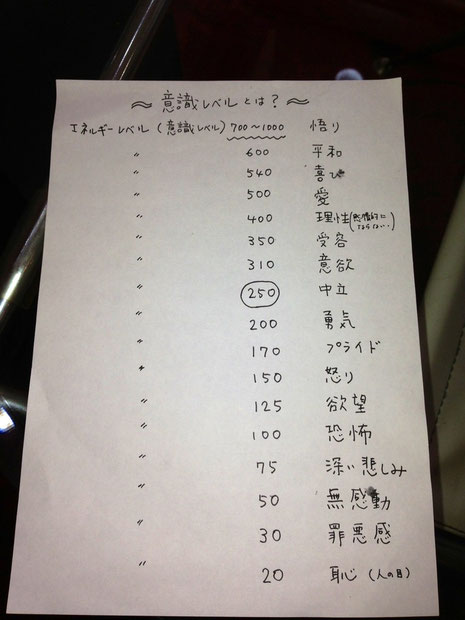 〜 意識レベルとは？ 〜
エネルギーレベル (意識レベル) 700〜1000 悟り
〃 600 平和
〃 540 喜び
〃 500 愛
〃 400 理性(感情的にならない。)
〃 350 受容
〃 310 意欲
〃 250 中立
〃 200 勇気
〃 170 プライド
〃 150 怒り
〃 125 欲望
〃 100 恐怖
〃 75 深い悲しみ
〃 50 無感動
〃 30 罪悪感
〃 20 恥 (人の目)